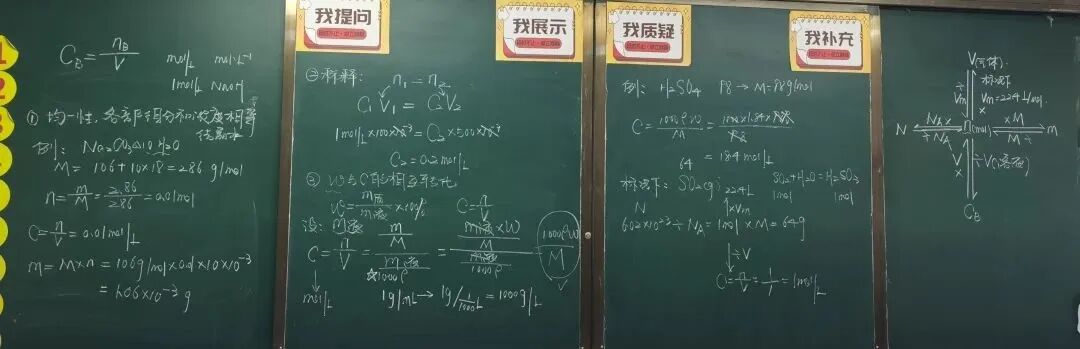 我提问
我展示
我质疑
我补充
C_B = n_B/V mol/L mol·L⁻¹
1mol/L NaOH
① 均一性,各部分组分和浓度相等
例: Na₂CO₃·10H₂O
M = 106+10×18 = 286 g/mol
n = m/M = 2.86/286 = 0.01mol
C = n/V = 0.01mol/L
m = M×n = 106g/mol×0.01×10×10⁻³
= 1.06×10⁻² g
② 稀释: n₁ = n₂
C₁V₁ = C₂V₂
1mol/L×100×10⁻³ = C₂×500×10⁻³
C₂ = 0.2mol/L
③ W与C的相互转化
W = m质/m液 ×100% C = n/V
设: m液
C = n/V = (m/M)/(m液/1000ρ) = (m液×W/M)/(m液/1000ρ) = 1000ρW/M
mol/L 1g/mL → 1g/(1/1000)L = 1000g/L
例: H₂SO₄ 98 → M = 98g/mol
C = 1000ρW/M = 1000×1.84×98%/98
= 18.4mol/L
64
标况下: SO₂(g) 22.4L SO₂+H₂O=H₂SO₃
N ↑×Vm 1mol 1mol
6.02×10²³ ÷ N_A = 1mol ×M = 64g
↓÷V
C = n/V = 1/1 = 1mol/L
V(气体)
标况下
÷Vm × Vm=22.4L/mol
N N_A× ÷N_A n(mol) ×M M÷ m
V × ÷V(溶液)
C_B